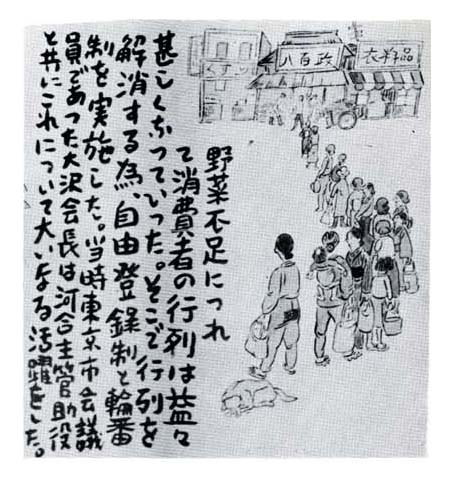 衣料品
八百政
くすり
野菜不足につれ
て消費者の行列は益々
甚しくなっていった。そこで行列を
解消する為、自由登録制と輪番
制を実施した。当時東京市会議
員であった大沢会長は河合主管助役
と共にこれについて大いなる活躍をした。